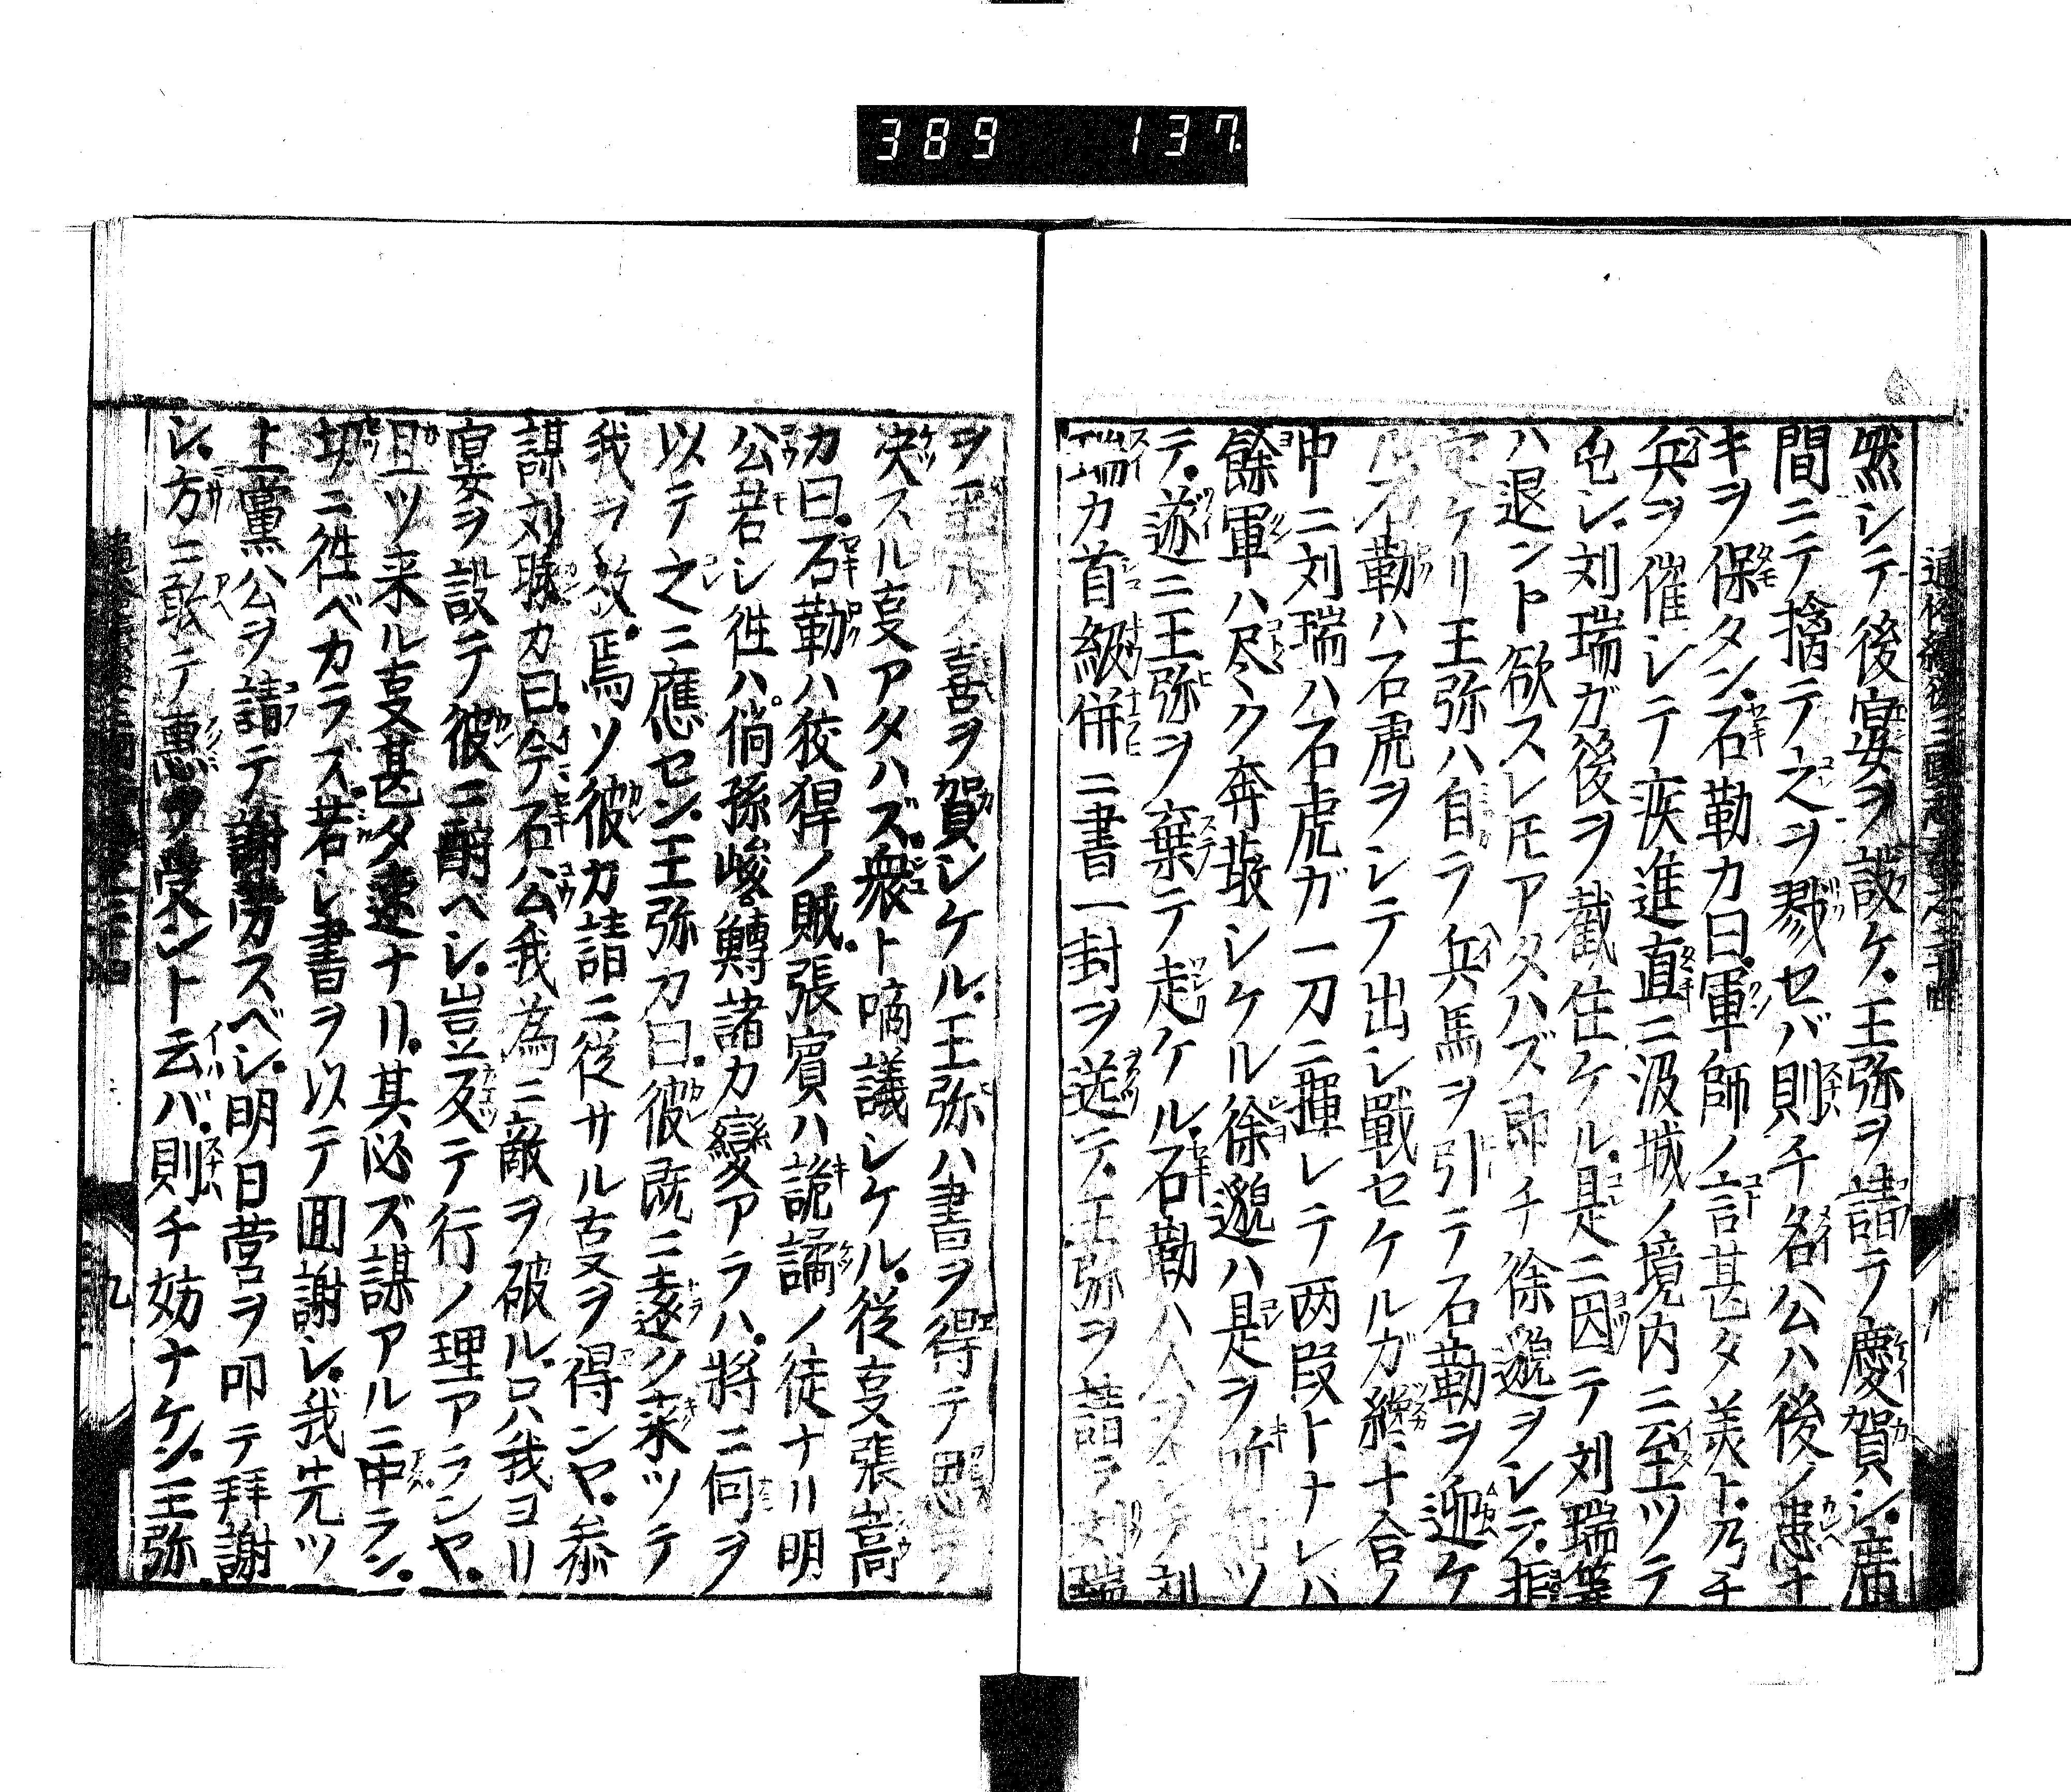 389 137
然シテ後宴ヲ設ケ王弥ヲ請テ慶賀シ席
間ニテ擒テ之ヲ戮セバ則チ名公ハ後ノ患ナ
キヲ保タン石勒カ曰軍師ノ言甚タ美ト乃チ
兵ヲ催シテ疾進直ニ汲城ノ境内ニ至ツテ
屯シ刘瑞ガ後ヲ截住ケル是ニ因テ刘瑞等
ハ退ント欲スレ𪜈アタハズ即チ徐邈ヲシテ拒
ケリ王弥ハ自ラ兵馬ヲ引テ石勒ヲ迎ケ
勒ハ石虎ヲシテ出シ戰セケルガ纔十合ノ
中ニ刘瑞ハ石虎ガ一刀ニ揮レテ両段トナレバ
餘軍ハ尽ク奔散シケル徐邈ハ是ヲ听
テ遂ニ王弥ヲ棄テ走ケル石勒ハ人ヲシテ刘
瑞カ首級併ニ書一封ヲ送テ王弥ヲ請テ刘瑞
ヲ平ノ喜ヲ賀シケル王弥ハ書ヲ得テ思テ
决スル㕝アタハズ衆ト啇議シケル従㕝張嵩
カ曰石勒ハ狡猂ノ賊張賓ハ詭譎ノ徒ナリ明
公若シ徃ハ倘孫峻鱄諸カ變アラハ將ニ何ヲ
以テ之ニ應セン王弥カ曰彼既ニ遠ク来ツテ
我ヲ救焉ソ彼カ請ニ従サル㕝ヲ得ンヤ参
謀刘暾カ曰今石公我為ニ敵ヲ破ル只我ヨリ
宴ヲ設テ彼ニ酧ベシ豈反テ行ノ理アランヤ
且ツ来ル㕝甚タ速ナリ其必ズ謀アルニ中ラン
切ニ徃ベカラズ若シ書ヲ以テ回謝シ我先ツ
上黨公ヲ請テ謝劳スベシ明日営ヲ叩テ拜謝
シ方ニ敢テ惠ヲ受ント云バ則チ妨ナケン王弥
九